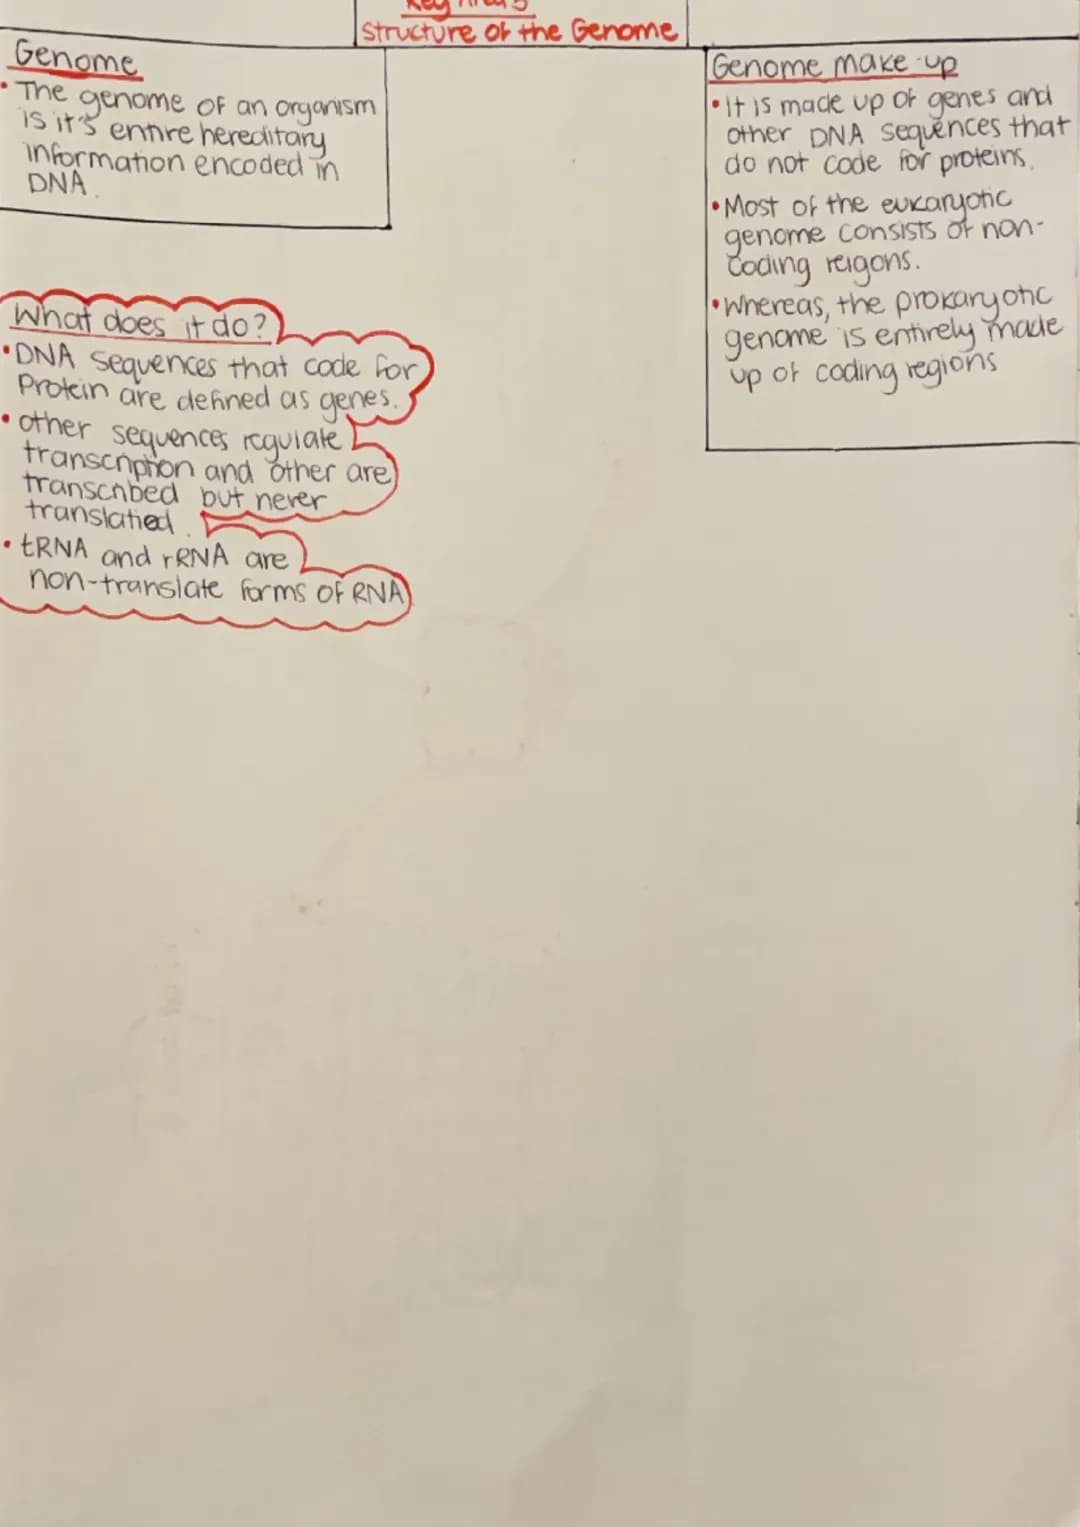 Key Area 5
Structure of the Genome
Genome
• The genome of an organism
is it's entire hereditary
information encoded in
DNA.
What does it do?
• DNA sequences that code for
Protein are defined as genes.
• other sequences regulate
transcription and other are
transcribed but never
translatied.
• tRNA and rRNA are
non-translate forms of RNA
Genome make-up
• It is made up of genes and
other DNA sequences that
do not code for proteins.
• Most of the eukaryotic
genome consists of non-
coding reigons.
• Whereas, the prokaryotic
genome is entirely made
up of coding regions